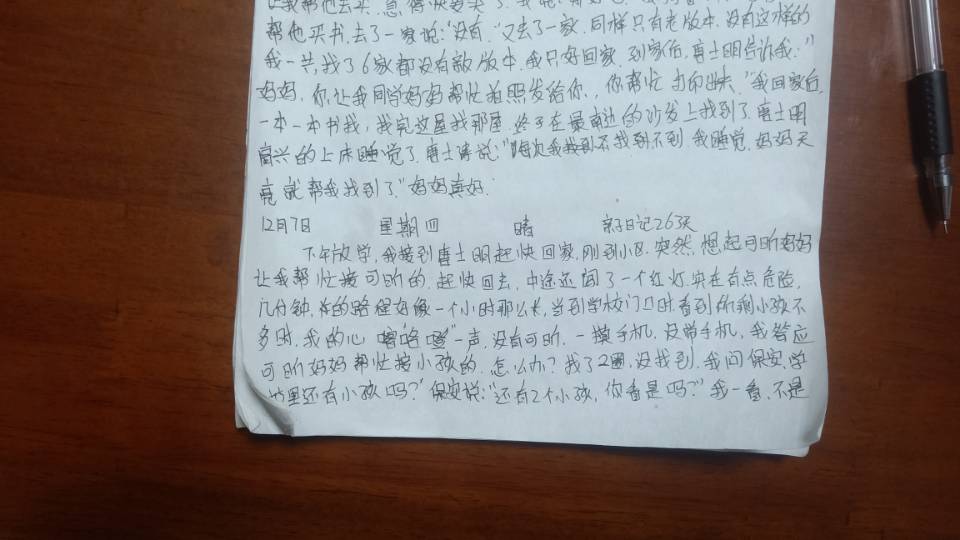 让我帮他去买，急得快要哭了，我说：
帮他买书，去了一家说：“没有，”又去了一家，同样只有老版本，没有这样的
我一共找了6家都没有新版本，我只好回家，到家后，唐士明告诉我：“
妈妈，你让我同学妈妈帮忙拍照发给你，你帮忙打印出来，”我回家后，
一本一本书找，我完这屋找那屋，终于在最南边的沙发上找到了，唐士明
高兴的上床睡觉了，唐士涛说：“每次我找到不找到不到，我睡觉，妈妈天
亮就帮我找到了”妈妈真好。
12月7日 星期四 晴 亲子日记263天
下午放学，我接到唐士明赶快回家，刚到小区，突然，想起可昕妈妈
让我帮忙接可昕的，赶快回去，中途还闯了一个红灯，实在有点危险，
几分钟的路程好像一个小时那么长，当到学校门口时，看到所剩小孩不
多时，我的心“咯噔”一声，没有可昕，一摸手机，没带手机，我答应
可昕妈妈帮忙接小孩的，怎么办？找了2圈，没找到，我问保安，学
校里还有小孩吗？”保安说：“还有2个小孩，你看是吗？”我一看，不是